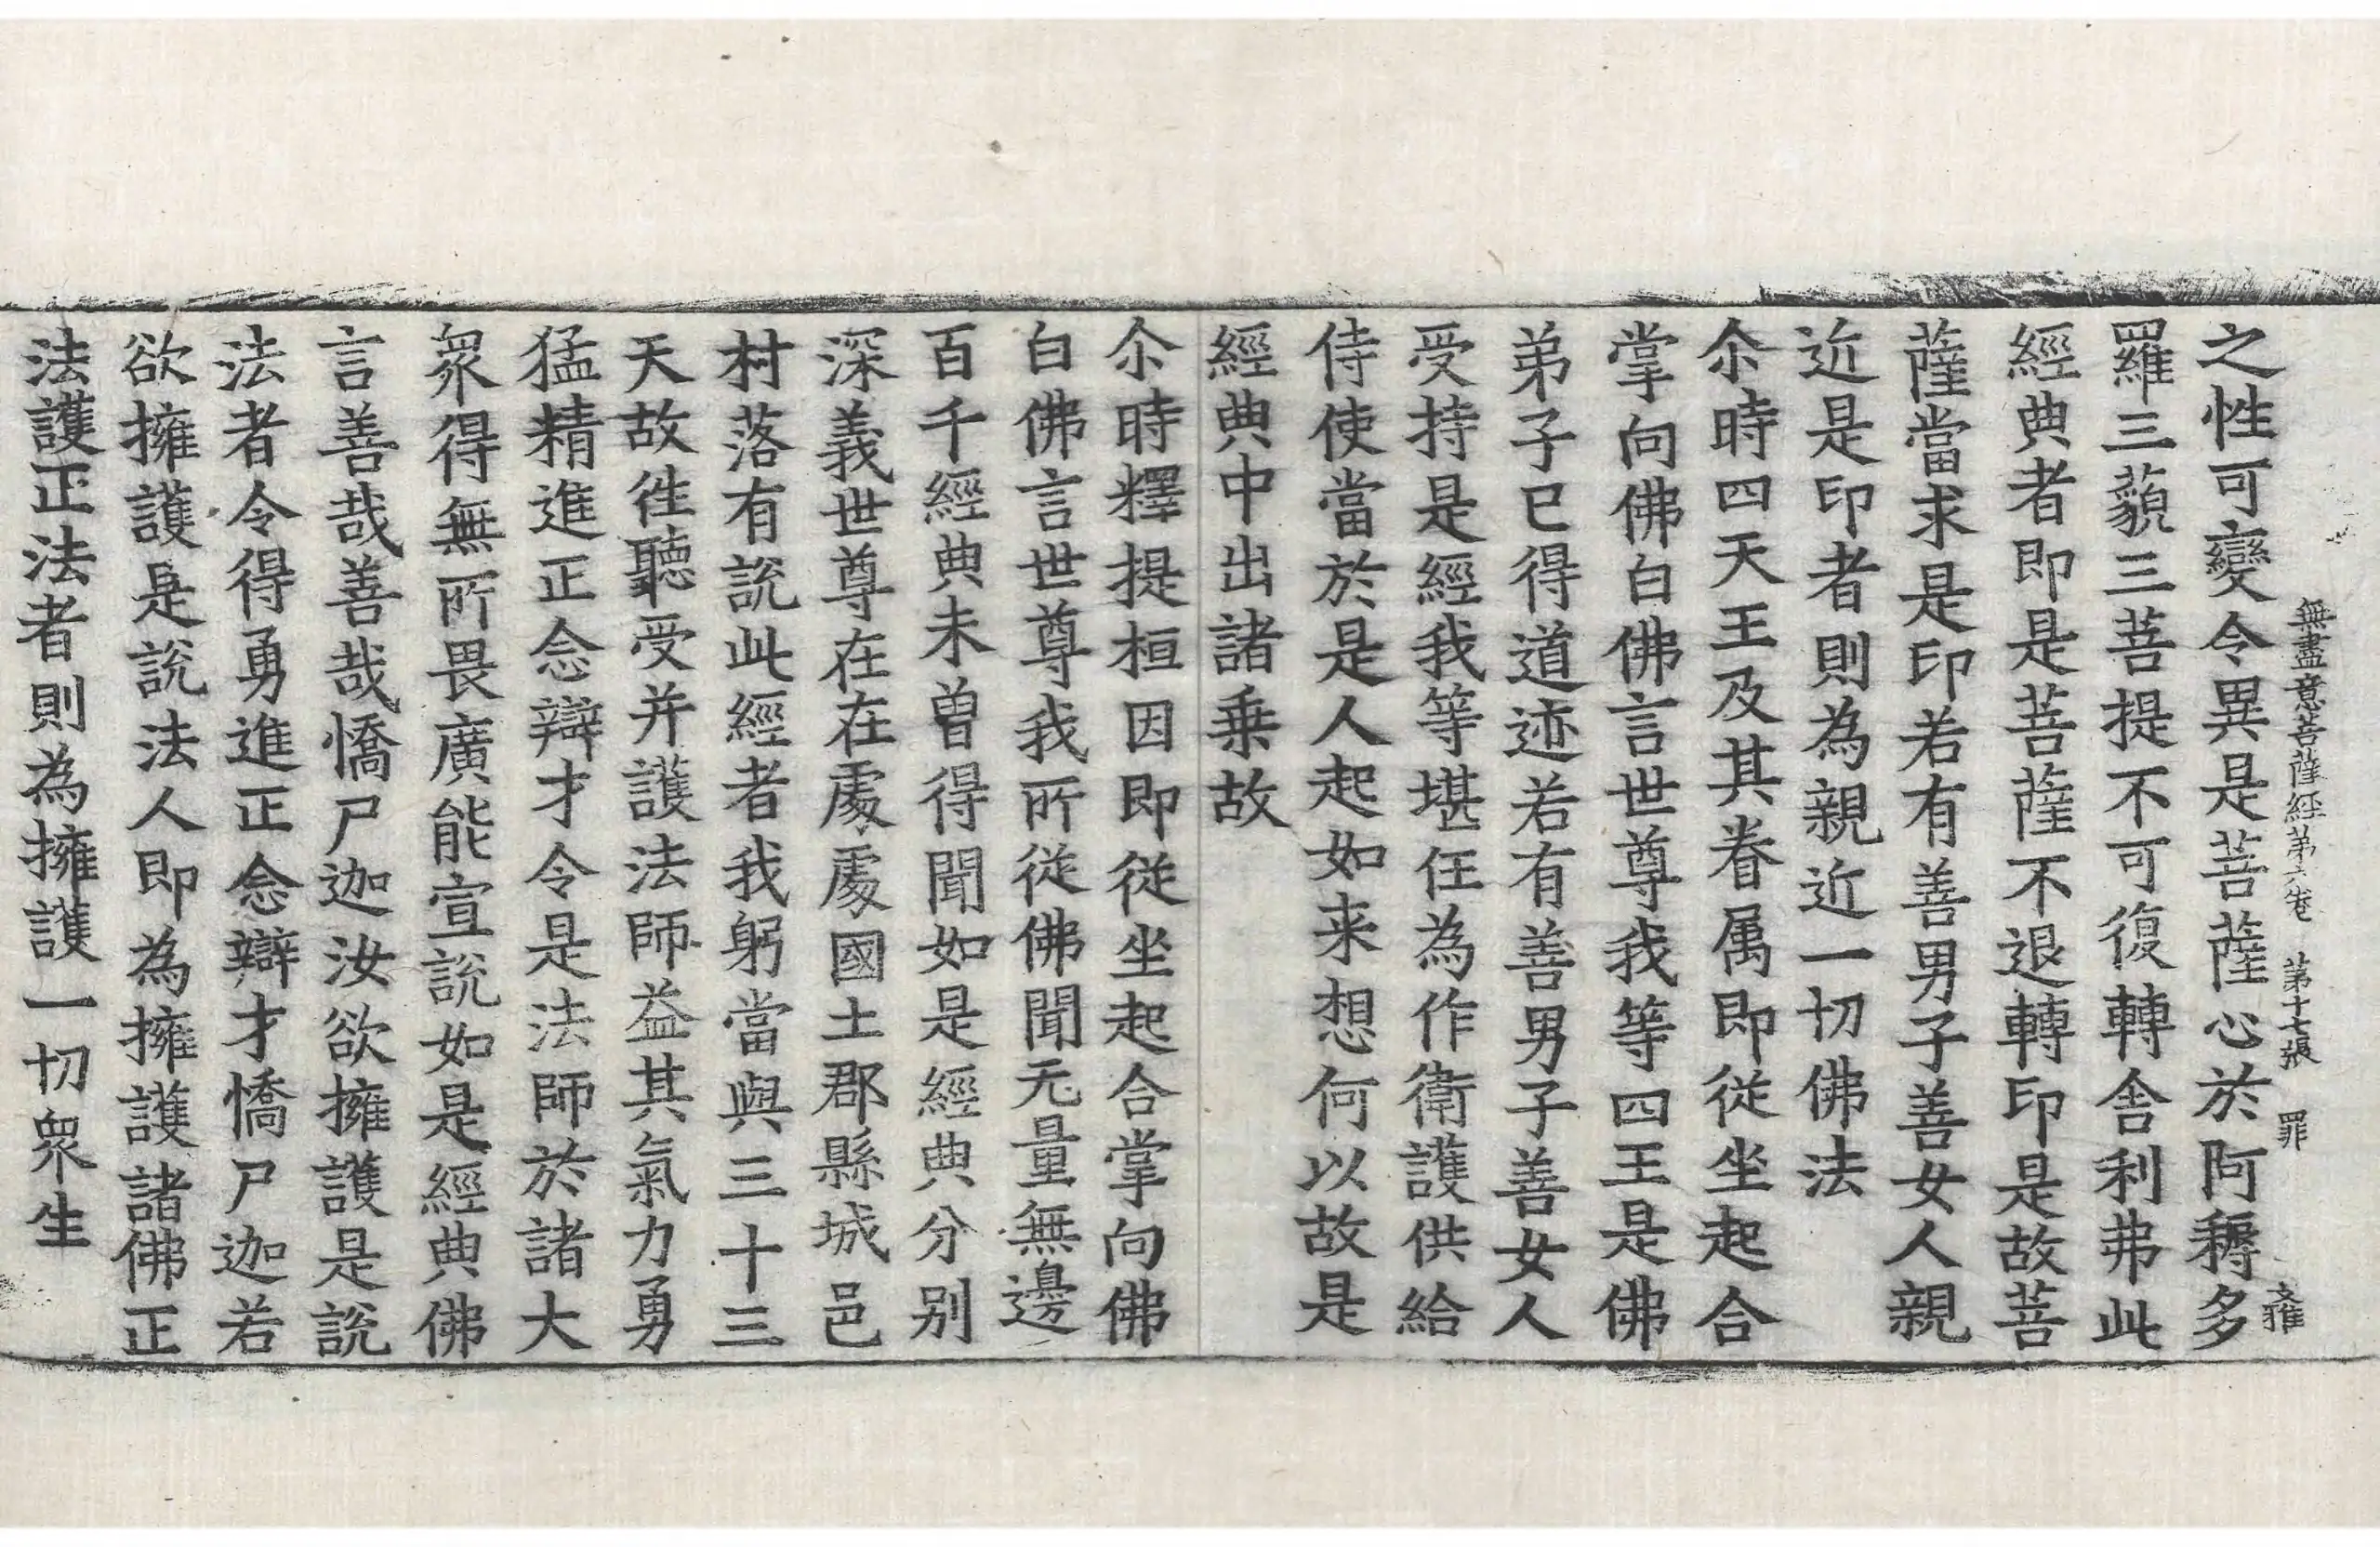 無盡意菩薩經第六卷 第十七張 罪
之性可變令異是菩薩心於阿耨多
羅三藐三菩提不可復轉舍利弗此
經典者即是菩薩不退轉印是故菩
薩當求是印若有善男子善女人親
近是印者則為親近一切佛法
尒時四天王及其眷属即從坐起合
掌向佛白佛言世尊我等四王是佛
弟子已得道迹若有善男子善女人
受持是經我等堪任為作衛護供給
侍使當於是人起如来想何以故是
經典中出諸乗故
尒時釋提桓因即從坐起合掌向佛
白佛言世尊我所從佛聞无量無邊
百千經典未曾得聞如是經典分别
深義世尊在在處處國土郡縣城邑
村落有説此經者我躬當與三十三
天故徃聽受并護法師益其氣力勇
猛精進正念辯才令是法師於諸大
衆得無所畏廣能宣説如是經典佛
言善哉善哉憍尸迦汝欲擁護是説
法者令得勇進正念辯才憍尸迦若
欲擁護是説法人即為擁護諸佛正
法護正法者則為擁護一切衆生